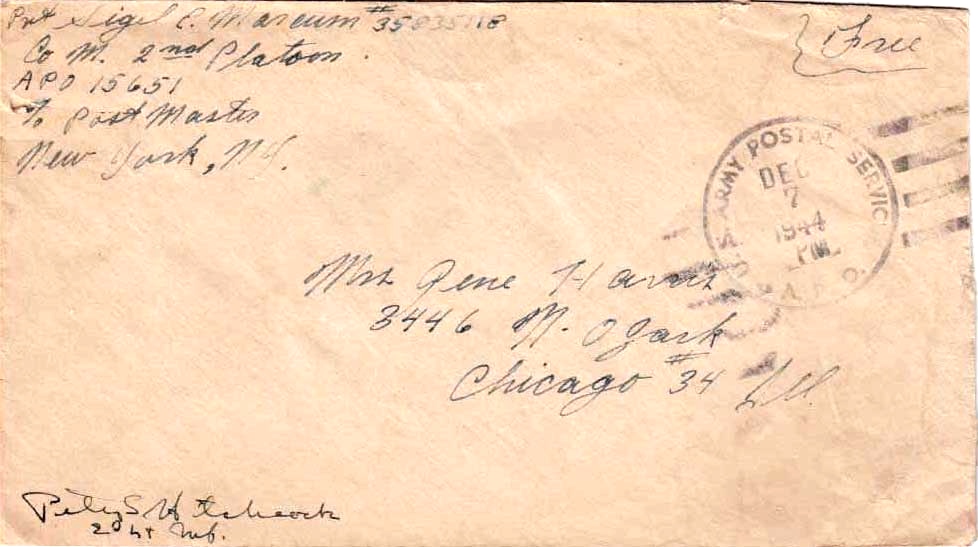 Pvt Sigel C. Marcum #35835118
Co M. 2nd Platoon.
APO 15651
℅ Post Master
New York, N.Y.
Free
U.S. ARMY POSTAL SERVICE
DEC
7
1944
PM
A.P.O.
Mrs Gene
3446 N. Ozark
Chicago #34 Ill.
Hitchcock
2d Lt Inf.